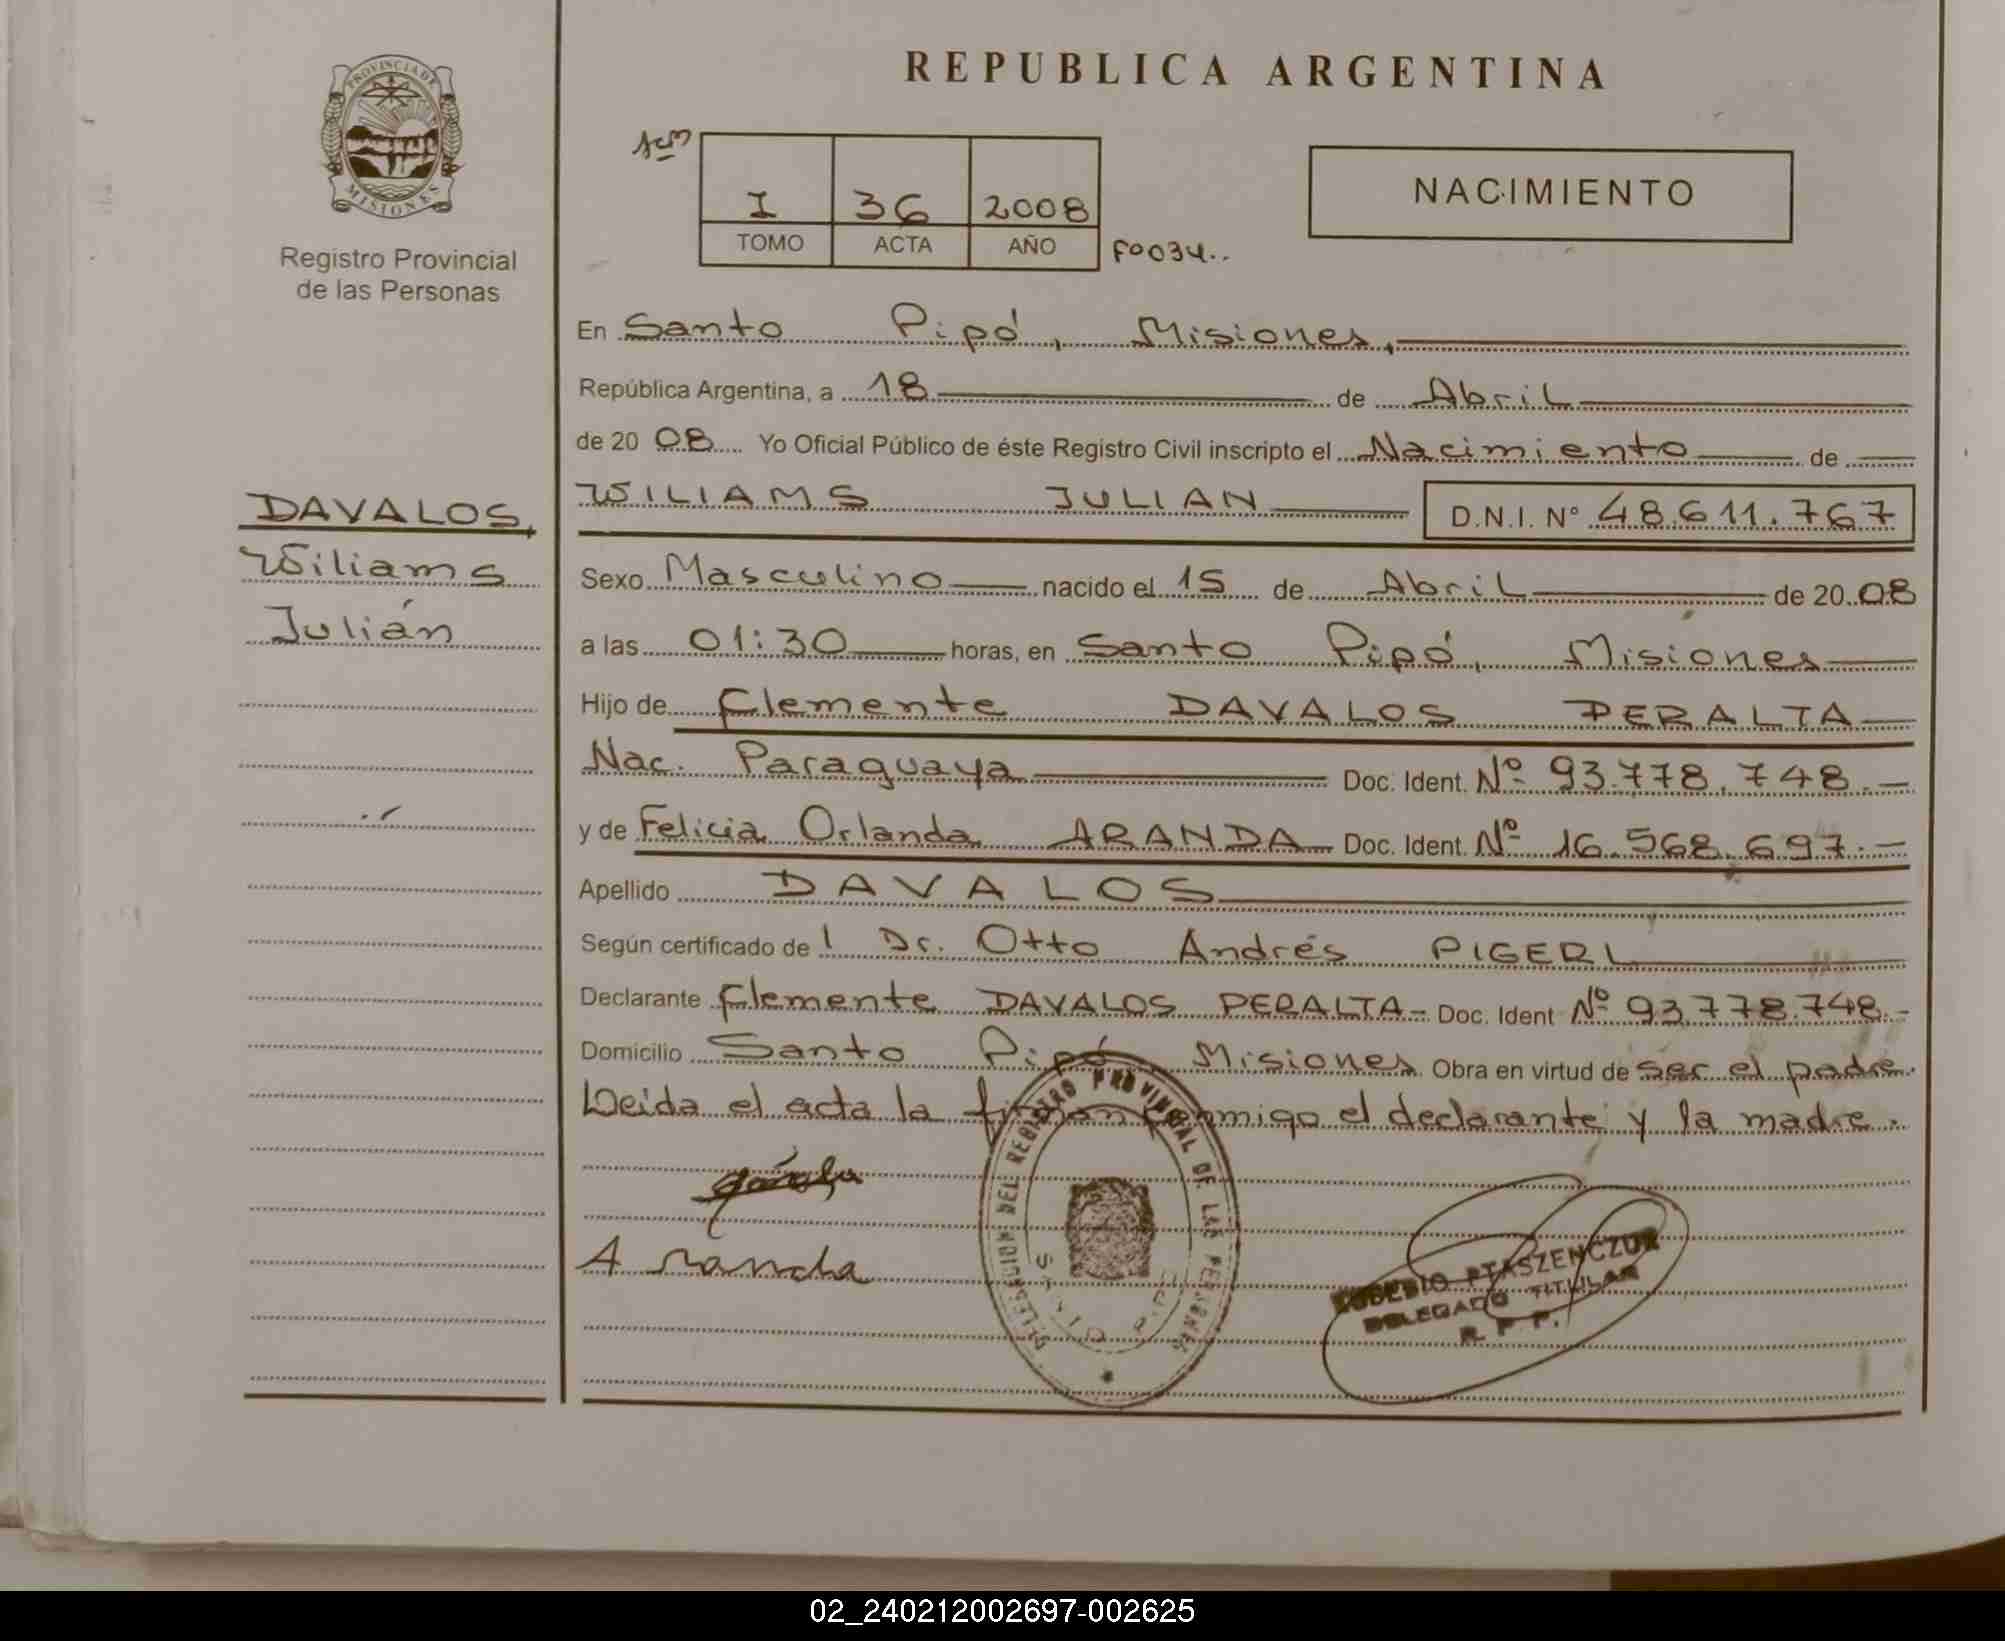 PROVINCIA DE
MISIONES
Registro Provincial
de las Personas
REPUBLICA ARGENTINA
I 36 2008
TOMO ACTA AÑO
Fº034..
NACIMIENTO
En Santo Pipó, Misiones,
República Argentina, a 18 de Abril
de 2008 Yo Oficial Público de éste Registro Civil inscripto el Nacimiento de
WILIAMS JULIAN D.N.I. Nº 48.611.767
DAVALOS,
Wiliams
Julián
Sexo Masculino nacido el 15 de Abril de 2008
a las 01:30 horas, en Santo Pipó, Misiones
Hijo de Clemente DAVALOS PERALTA
Nac. Paraguaya Doc. Ident. Nº 93.778.748.-
y de Felicia Orlanda ARANDA Doc. Ident. Nº 16.568.697.-
Apellido DAVALOS
Según certificado de l Dr. Otto Andrés PIGERL
Declarante Clemente DAVALOS PERALTA- Doc. Ident Nº 93.778.748.-
Domicilio Santo Pipó Misiones Obra en virtud de ser el padre.
Leida el acta la firman conmigo el declarante y la madre.
Aranda
DELEGACION DEL REGISTRO PROVINCIAL DE LAS PERSONAS
SANTO PIPO
EUSEBIO PTASZENCZUK
DELEGADO TITULAR
R. P. P.
02_240212002697-002625